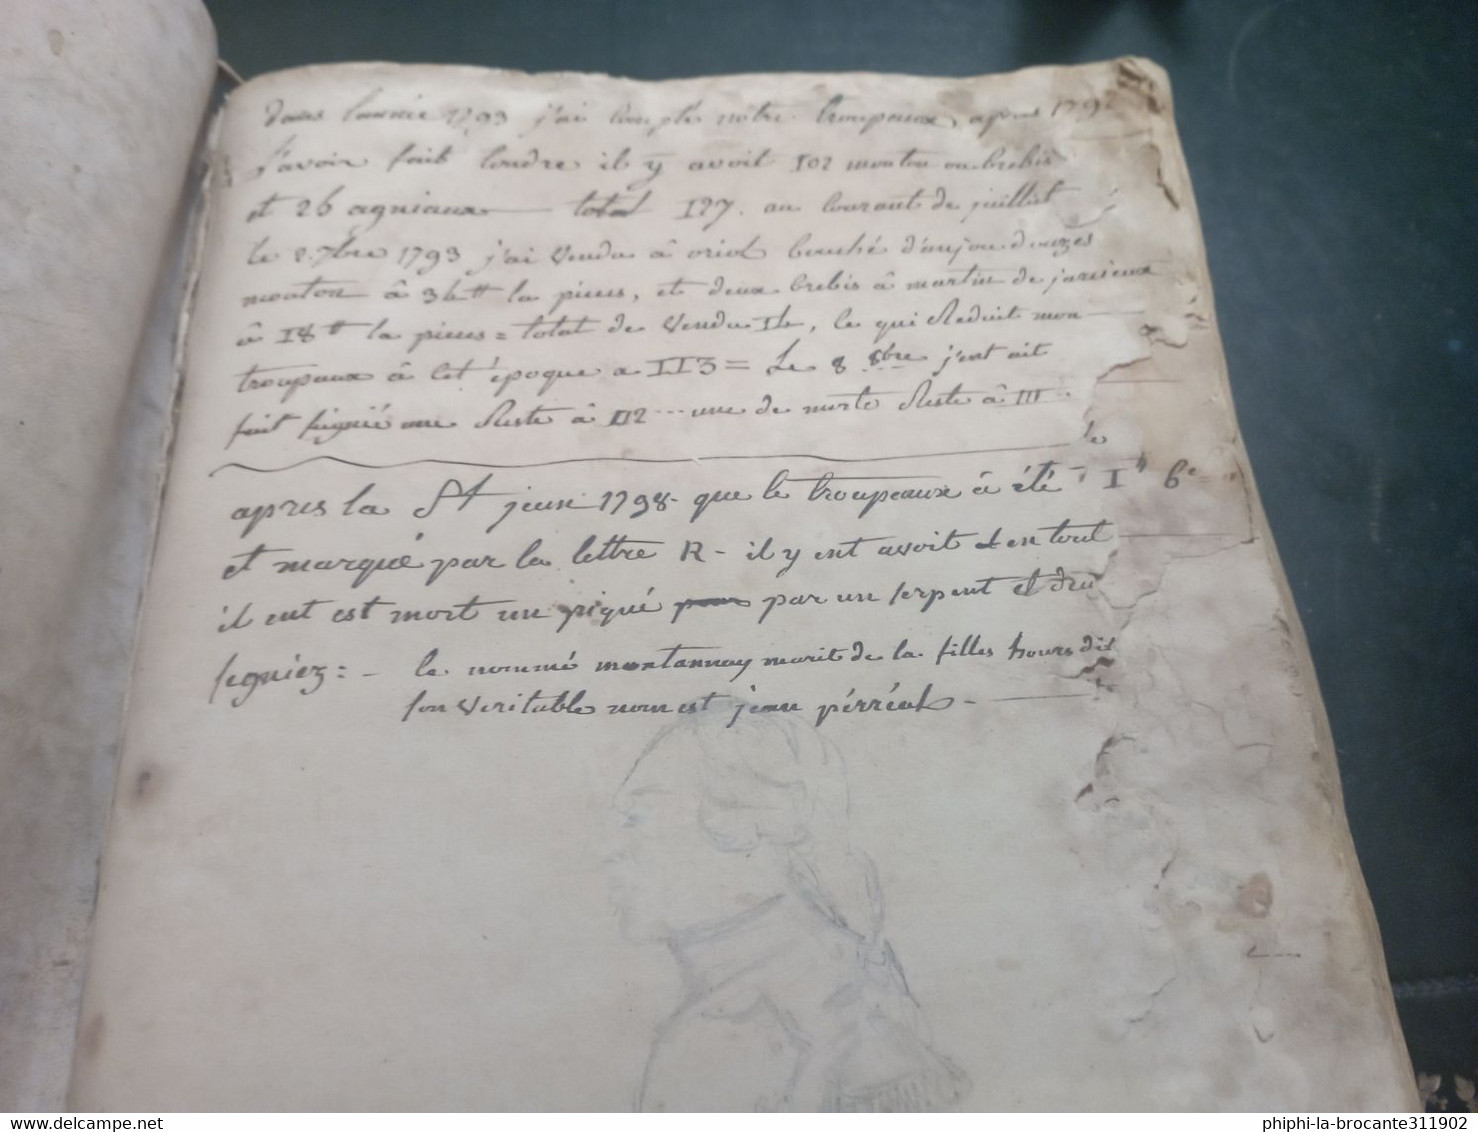 dans l'année 1793 j'ai compté nôtre troupeaux, apres 179
l'avoir fait tondre il y avoit 102 mouton ou brebis
et 26 agniaux — total 127. au courant de juillet
le 2. 7bre 1793 j'ai vendu â oriol bouché d'anjou douzes
mouton â 34tt la pieces, et deux brebis â martin de jarcieux
â 18tt la pieces = total de vendu 14, le qui Reduit mon
troupaux â cet époque a 113 = Le 8 8bre j'ent ait
fait seignié une Reste â 112 ... une de morte Reste â 111
le
apres la St jean 1798 - que le troupeaux â été
et marqué par la lettre R - il y ent avoit en tout
il ent est mort un piqué par un serpent et
segniez = - le nommé montannay marit de la filles hours dit
son veritable nom est jean pérréal -
phiphi-la-brocante311902
delcampe.net